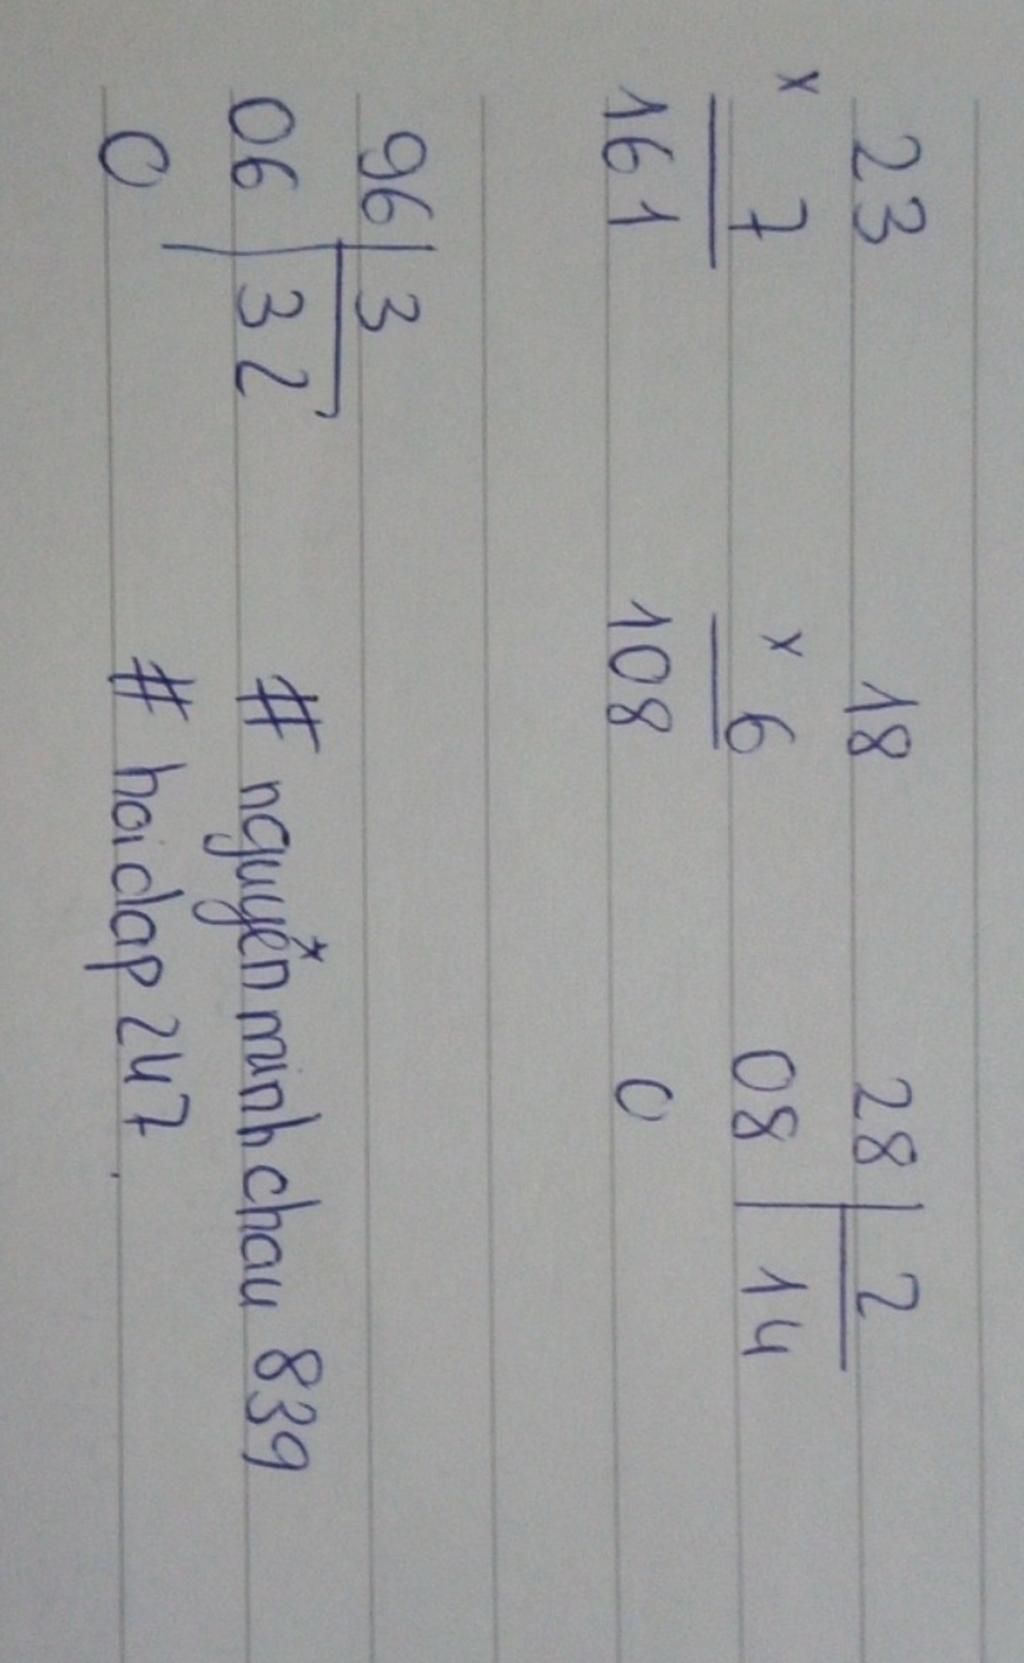 23 18 28 | 2
x 7 x 6 08 | 14
161 108 0
96 | 3
06 | 32 # nguyễn minh chau 839
0 # hoidap247